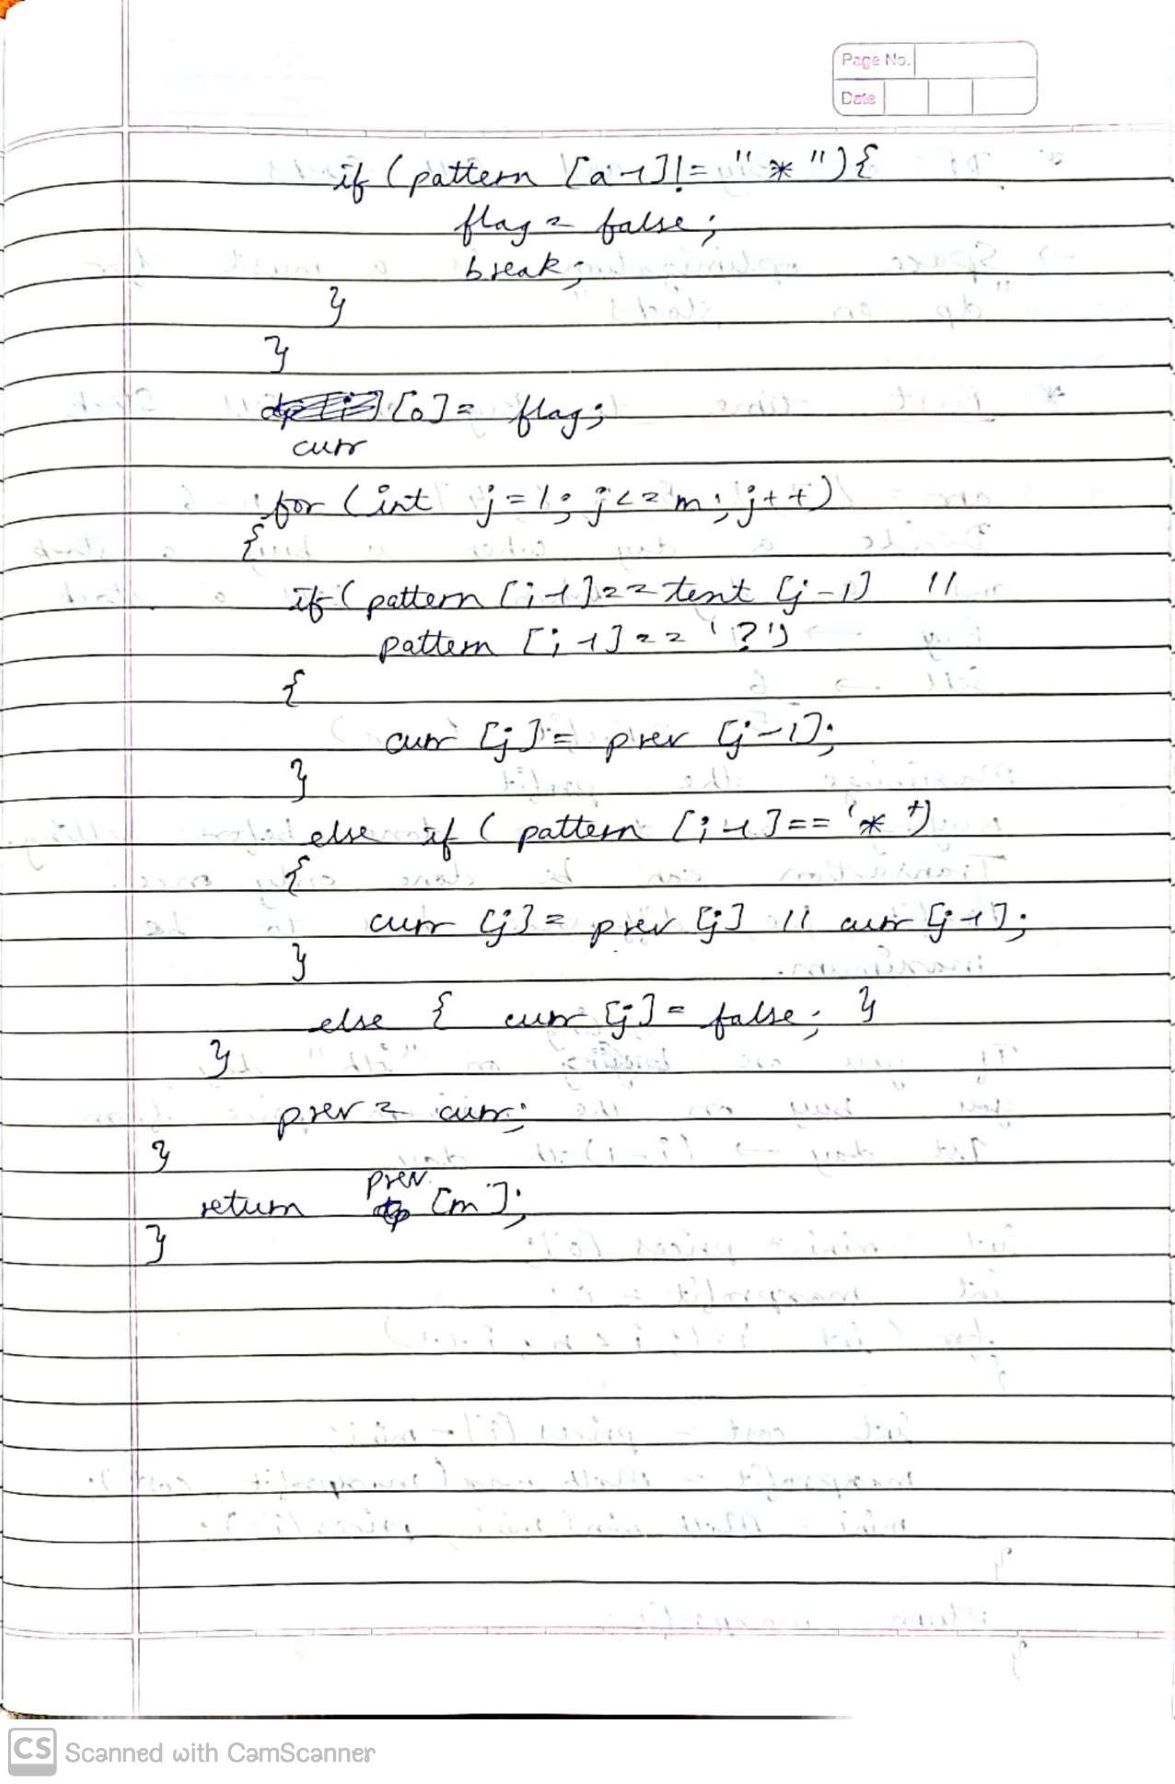 Page No.
Date
if (pattern [a-1]!= "*"){
flag = false;
break;
}
}
[0]= flag;
curr
for (int j=1; j<=m; j++)
{
if (pattern [i-1]==text [j-1] ||
pattern [i-1]=='?')
{
curr [j]= prev [j-1];
}
else if ( pattern [i-1]=='*')
{
curr [j]= prev [j] || curr [j-1];
}
else { curr [j]= false; }
}
prev = curr;
}
prev
return [m];
}
CS Scanned with CamScanner